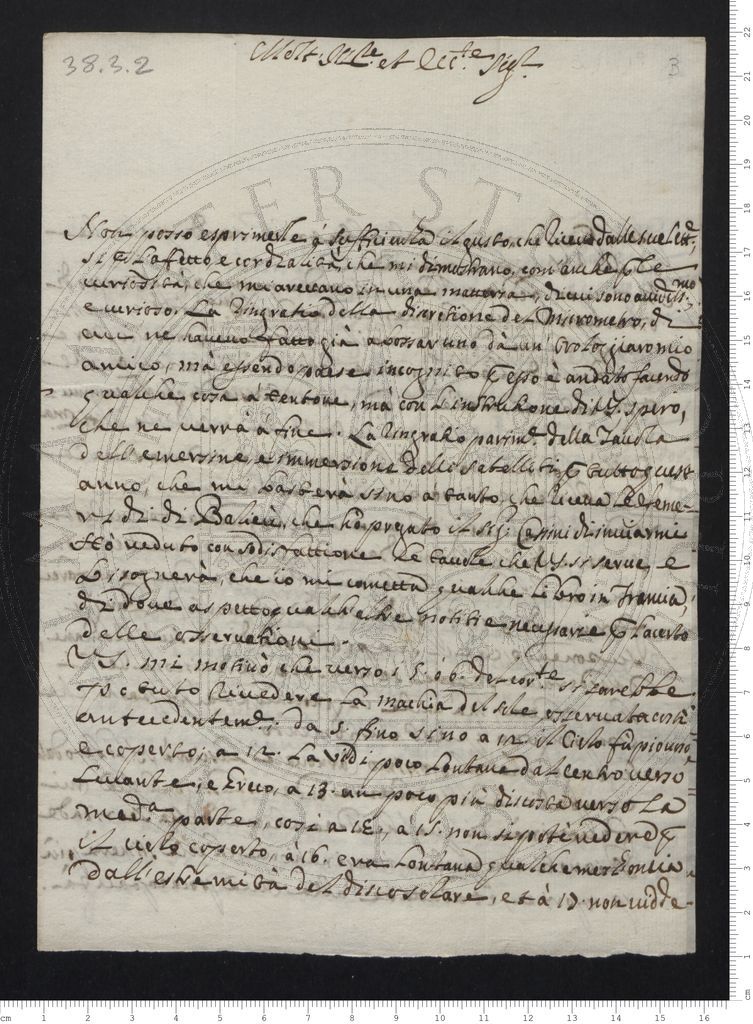 38.3.2
3
Molt Ill.re et Ecc.te Sig.r
Non posso esprimerle à sufficienza il gusto, che ricevo dalle sue lett.e,
si p l'affetto e cordialità, che mi dimostrano, com'anche p le
curiosità, che mi arrecano in una materia, di cui sono avidiss.mo
e curioso. La ringratio della discretione del Micrometro, di
cui ne havevo fatto già abbozzar uno dà un' Orologgiaro mio
amico, mà essendo paese incognito p esso è andato facendo
qualche cosa à tentone, mà con l'instruttione di V.S. spero,
che ne verrà à fine. La ringratio parim.te della Tavola
dell'emersine, e immersione delli satelliti p tutto quest
anno, che mi basterà sino à tanto, che riceva le efeme-
ridi di che hò pregato il sig. Cassini di inviarmi
Hò veduto con sodisfattione le tavole che V.S. si serve, e
bisognerà, che io mi cometta qualche libro in Francia,
di dove aspetto qualch'altre notitie necessarie p
delle osservationi.
V.S. mi motivò che verso i 5. ò 6. del cor.te si sarebbe
potuto rivedere la machia del sole osservata
antecedentem.te, da 5. fino sino a 12. il Cielo fù piovoso
e coperto; a 12. la vidi poco lontana dal centro verso
Levante, e Greco, a 13. un poco più discosta verso la
med.a parte, cosi a 14, a 15. non si potè vedere p
il cielo coperto, à 16. era lontana qualche mezz'oncia
dall'estremità del disco solare, et à 17. non vidde-